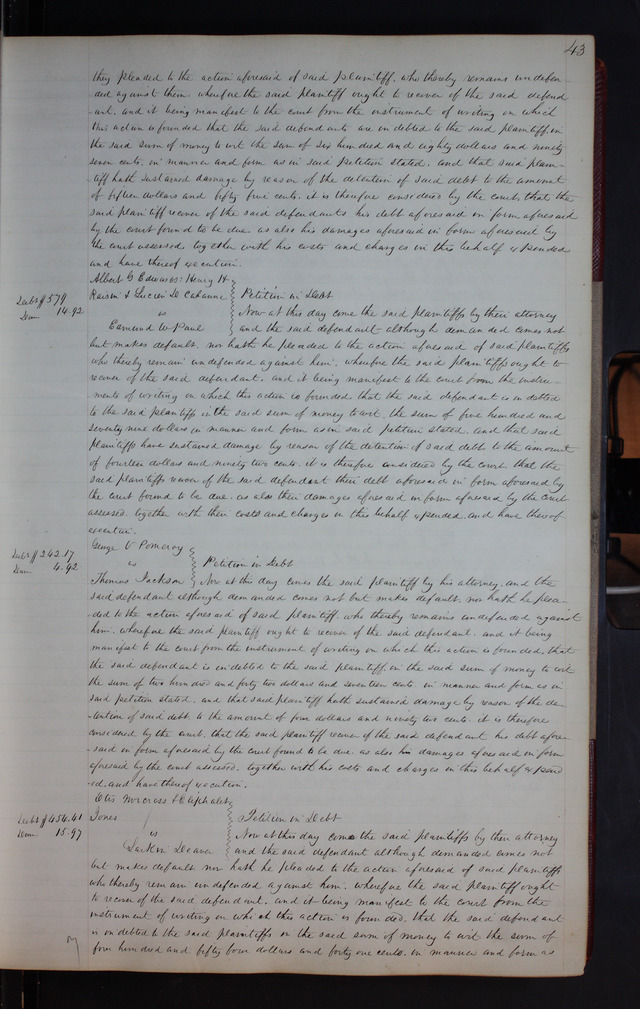 43
they pleaded to the action aforesaid of said plaintiff, who thereby remains undefen-
ded against them wherefore the said plaintiff ought to recover of the said defend
ant. and it being manifest to the court from the instrument of writing on which
this action is founded that the said defendants are indebted to the said plaintiff in
the said sum of money to wit the sum of six hundred and eighty dollars and ninety
seven cents. in manner and form as in said petition stated. and that said plain-
tiff hath sustained damage by reason of the detention of said debt to the amount
of fifteen dollars and fifty five cents. it is therefore considered by the court, that the
said plaintiff recover of the said defendants his debt aforesaid in form aforesaid
by the court found to be due. as also his damages aforesaid in form aforesaid by
the court assessed together with his costs and charges in this behalf expended
and have thereof execution.
Albert G Edwards, Henry H
Debt $579 Raisin & Lucien D Cabanne Petition in Debt
Dam 14.92 vs Now at this day come the said plaintiffs by their attorney
Edmund W Paul and the said defendant although demanded comes not
but makes default. nor hath he pleaded to the action aforesaid of said plaintiffs
who thereby remain undefended against him. wherefore the said plaintiffs ought to
recover of the said defendant. and it being manifest to the court from the instru-
ments of writing on which this action is founded that the said defendant is indebted
to the said plaintiffs in the said sum of money to wit. the sum of five hundred and
seventy nine dollars in manner and form as in said petition stated. and that said
plaintiffs have sustained damage by reason of the detention of said debt to the amount
of fourteen dollars and ninety two cents. it is therefore considered by the court that the
said plaintiffs recover of the said defendant their debt aforesaid in form aforesaid by
the court found to be due. as also their damages aforesaid in form aforesaid by the court
assessed. together with their costs and charges in this behalf expended. and have thereof
execution.
George V Pomeroy
Debt $242.17 vs Petition in Debt
Dam 4.92 Thomas Jackson Now at this day comes the said plaintiff by his attorney. and the
said defendant although demanded comes not but makes default. nor hath he plea-
ded to the action aforesaid of said plaintiff. who thereby remains undefended against
him. wherefore the said plaintiff ought to recover of the said defendant. and it being
manifest to the court from the instrument of writing on which this action is founded, that
the said defendant is indebted to the said plaintiff in the said sum of money to wit
the sum of two hundred and forty two dollars and seventeen cents. in manner and form as in
said petition stated. and that said plaintiff hath sustained damage by reason of the de-
tention of said debt. to the amount of four dollars and ninety two cents. it is therefore
considered by the court. that the said plaintiff recover of the said defendant his debt afore-
said in form aforesaid by the court found to be due. as also his damages aforesaid in form
aforesaid by the court assessed. together with his costs and charges in this behalf expend
ed. and have thereof execution.
Otis Norcross & Eliphalet
Debt $454.41 Jones Petition in Debt
Dam 15.97 vs Now at this day come the said plaintiffs by their attorney
Larkin Deaver and the said defendant although demanded comes not
but makes default nor hath he pleaded to the action aforesaid of said plaintiffs
who thereby remain undefended against him. wherefore the said plaintiff ought
to recover of the said defendant. and it being manifest to the court from the
instrument of writing on which this action is founded. that the said defendant
is indebted to the said plaintiffs in the said sum of money to wit the sum of
four hundred and fifty four dollars and forty one cents. in manner and form as